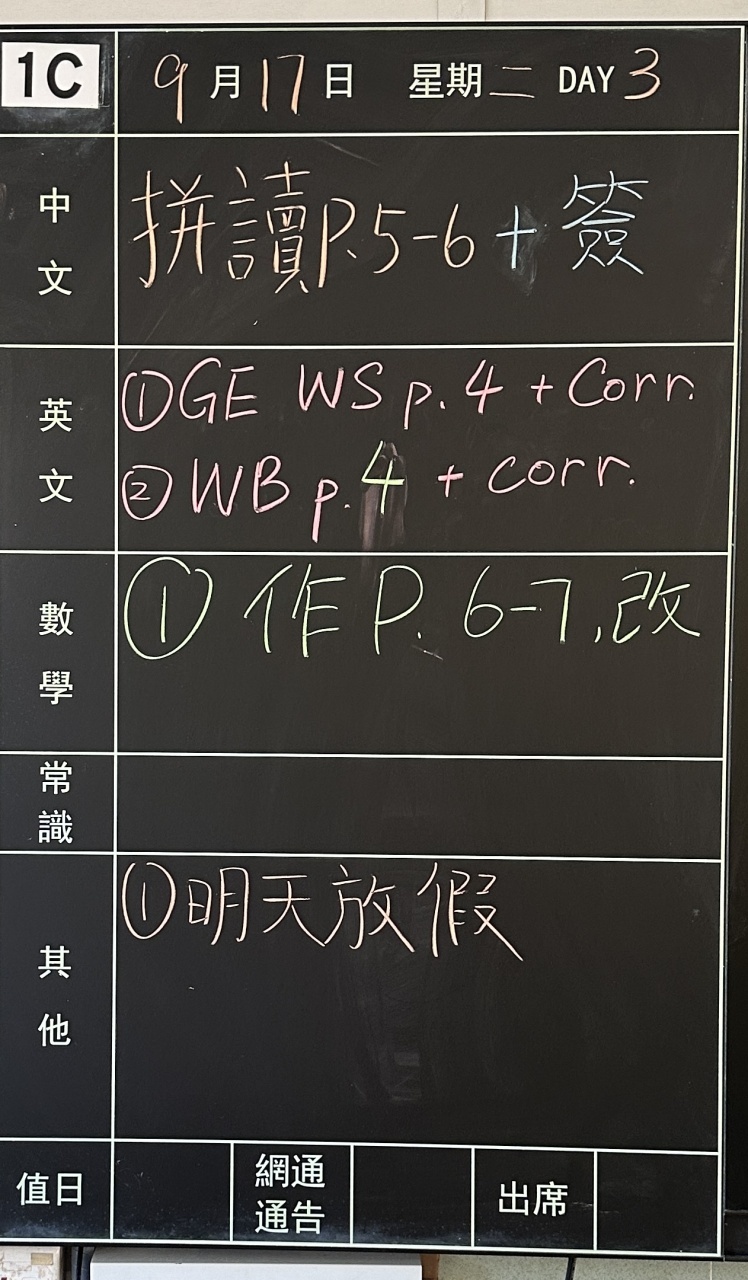 1C 9月17日 星期二 DAY 3
中文 拼讀P.5-6 + 簽
英文 ①GE WS p.4 + Corr.
②WB p.4 + corr.
數學 ① 作 P. 6-7,改
常識
其他 ①明天放假
值日 網通通告 出席